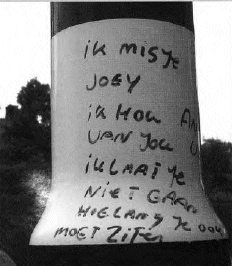 iK MiS Je
JOEY
iK HOU AN
VAN JOU U
iK LAAT Je
NieT GAAN
HOELANG Je OOK
MOET ZiTeN